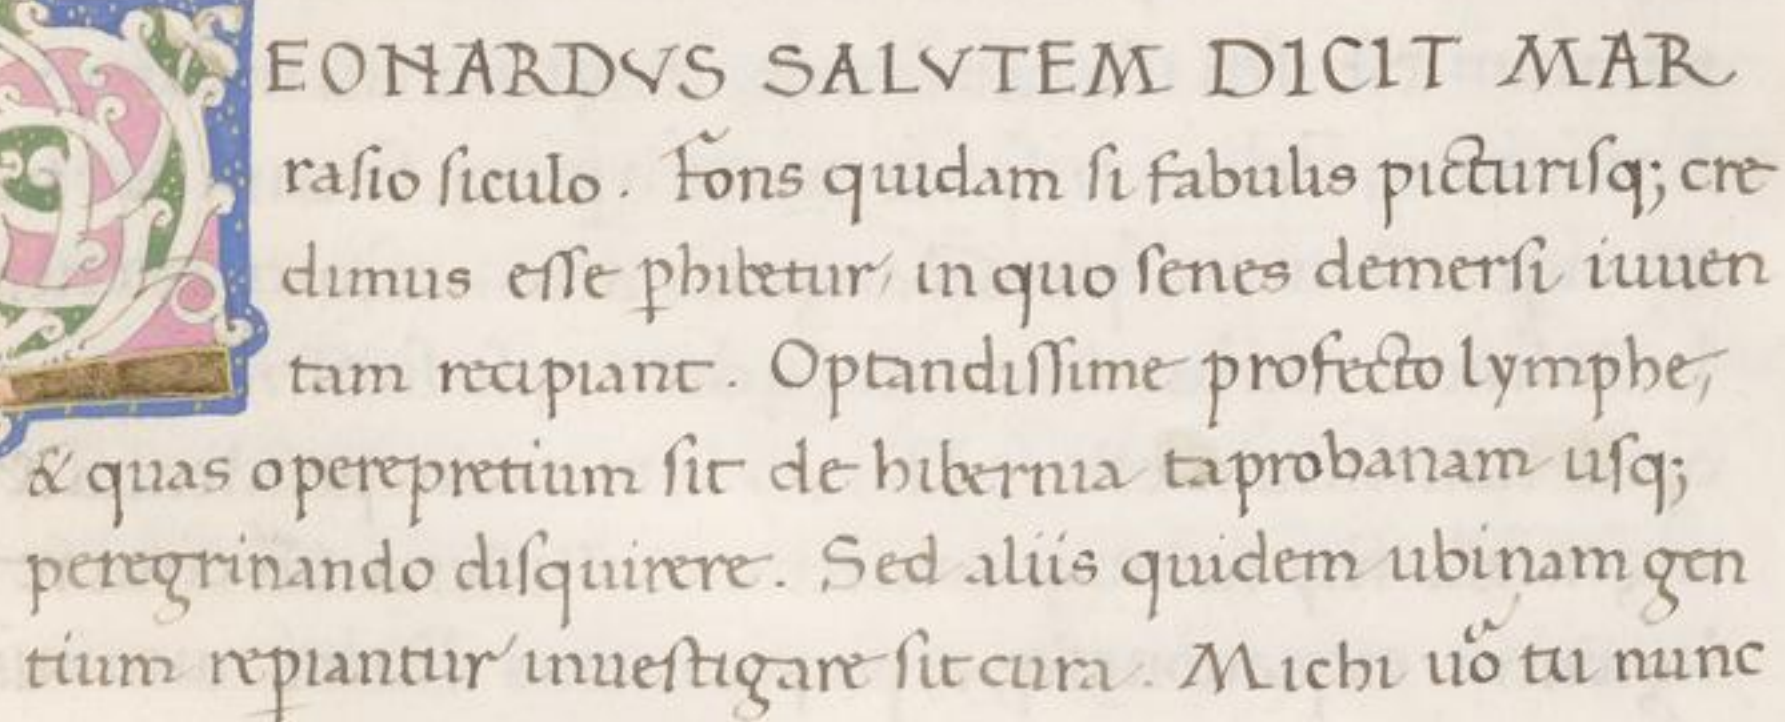 LEONARDVS SALVTEM DICIT MAR
raſio ſiculo . Fons quidam ſi fabulis picturiſq; cre
dimus eſſe ꝑhibetur, in quo ſenes demerſi iuuen
tam recipiant . Optandiſſime profecto lymphe,
& quas operepretium ſit de hibernia taprobanam uſq;
peregrinando diſquirere . Sed aliis quidem ubinam gen
tium reꝑiantur inueſtigare ſit cura . Michi uͦo tu nunc